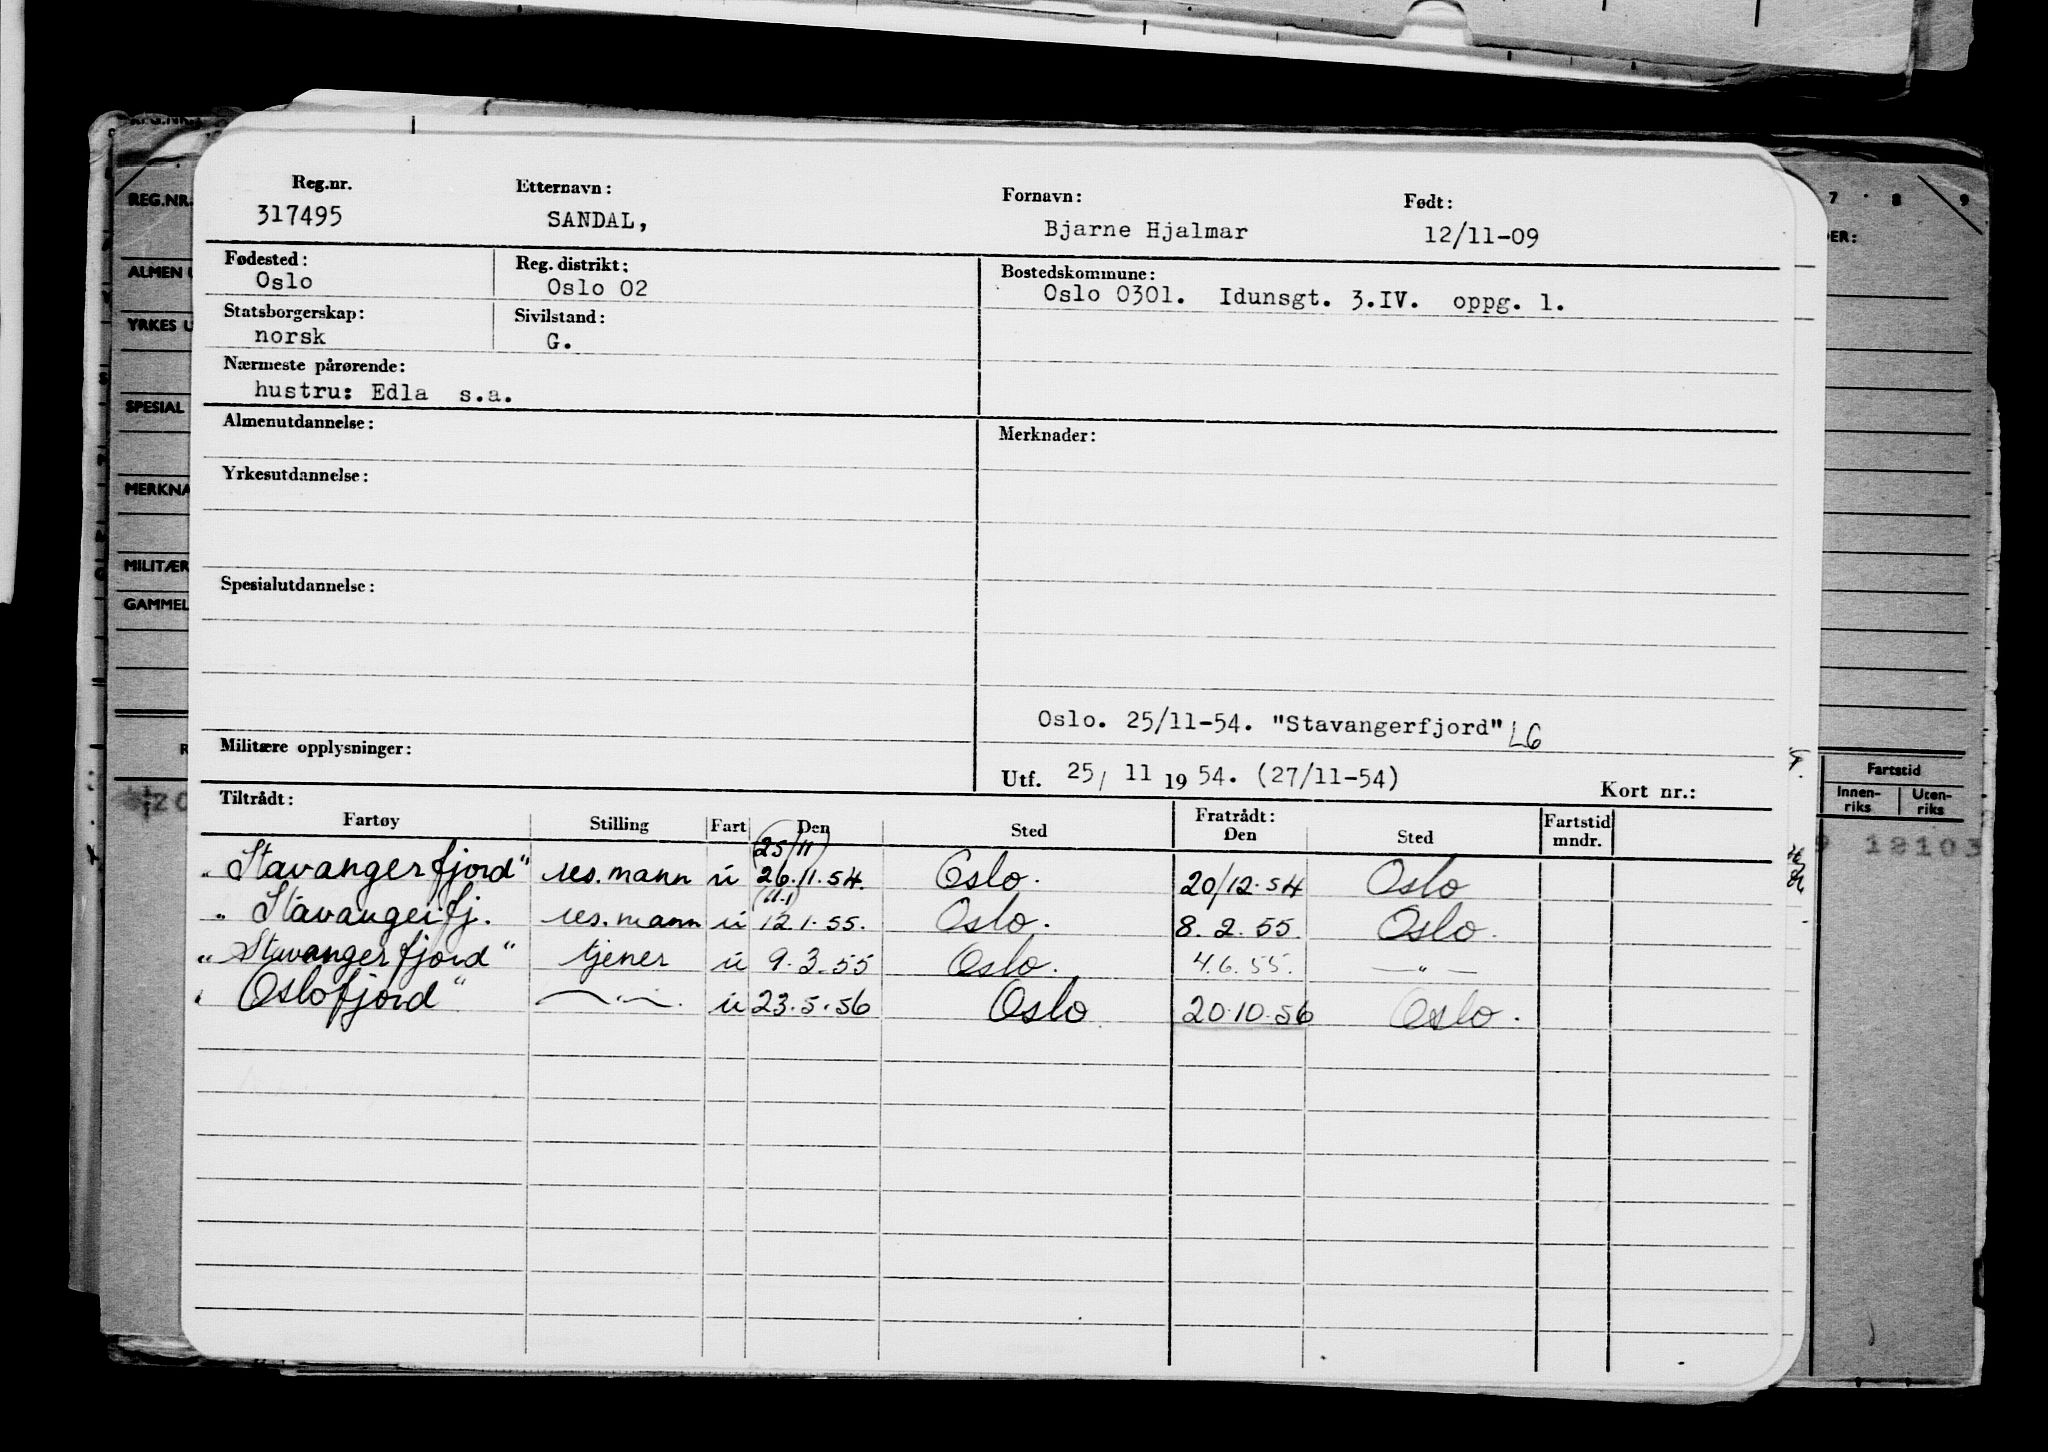 REG.NR.
ALMEN U
YRKES U
SPESIAL
MERKNA
MILITÆR
GAMMEL
7 8 9
DER:
Reg.nr. Etternavn: Fornavn: Født:
317495 SANDAL, Bjarne Hjalmar 12/11-09
Fødested: Reg. distrikt: Bostedskommune:
Oslo Oslo 02 Oslo 0301. Idunsgt. 3.IV. oppg. 1.
Statsborgerskap: Sivilstand:
norsk G.
Nærmeste pårørende:
hustru: Edla s.a.
Almenutdannelse: Merknader:
Yrkesutdannelse:
Spesialutdannelse:
Oslo. 25/11-54. "Stavangerfjord" LG
Militære opplysninger:
Utf. 25/ 11 19 54. (27/11-54) Kort nr.:
Tiltrådt: Fratrådt: Fartstid
Fartøy Stilling Fart Den Sted Den Sted mndr.
(25/11)
"Stavangerfjord" res.mann u 26.11.54. Oslo. 20/12.54 Oslo
(11.1)
" Stavangerfj. res.mann u 12.1.55. Oslo. 8.2.55 Oslo.
"Stavangerfjord" tjener u 9.3.55 Oslo. 4.6.55. — " —
" Oslofjord" — " — u 23.5.56 Oslo 20.10.56 Oslo.
Fartstid
Innen-
riks
Uten-
riks
18103